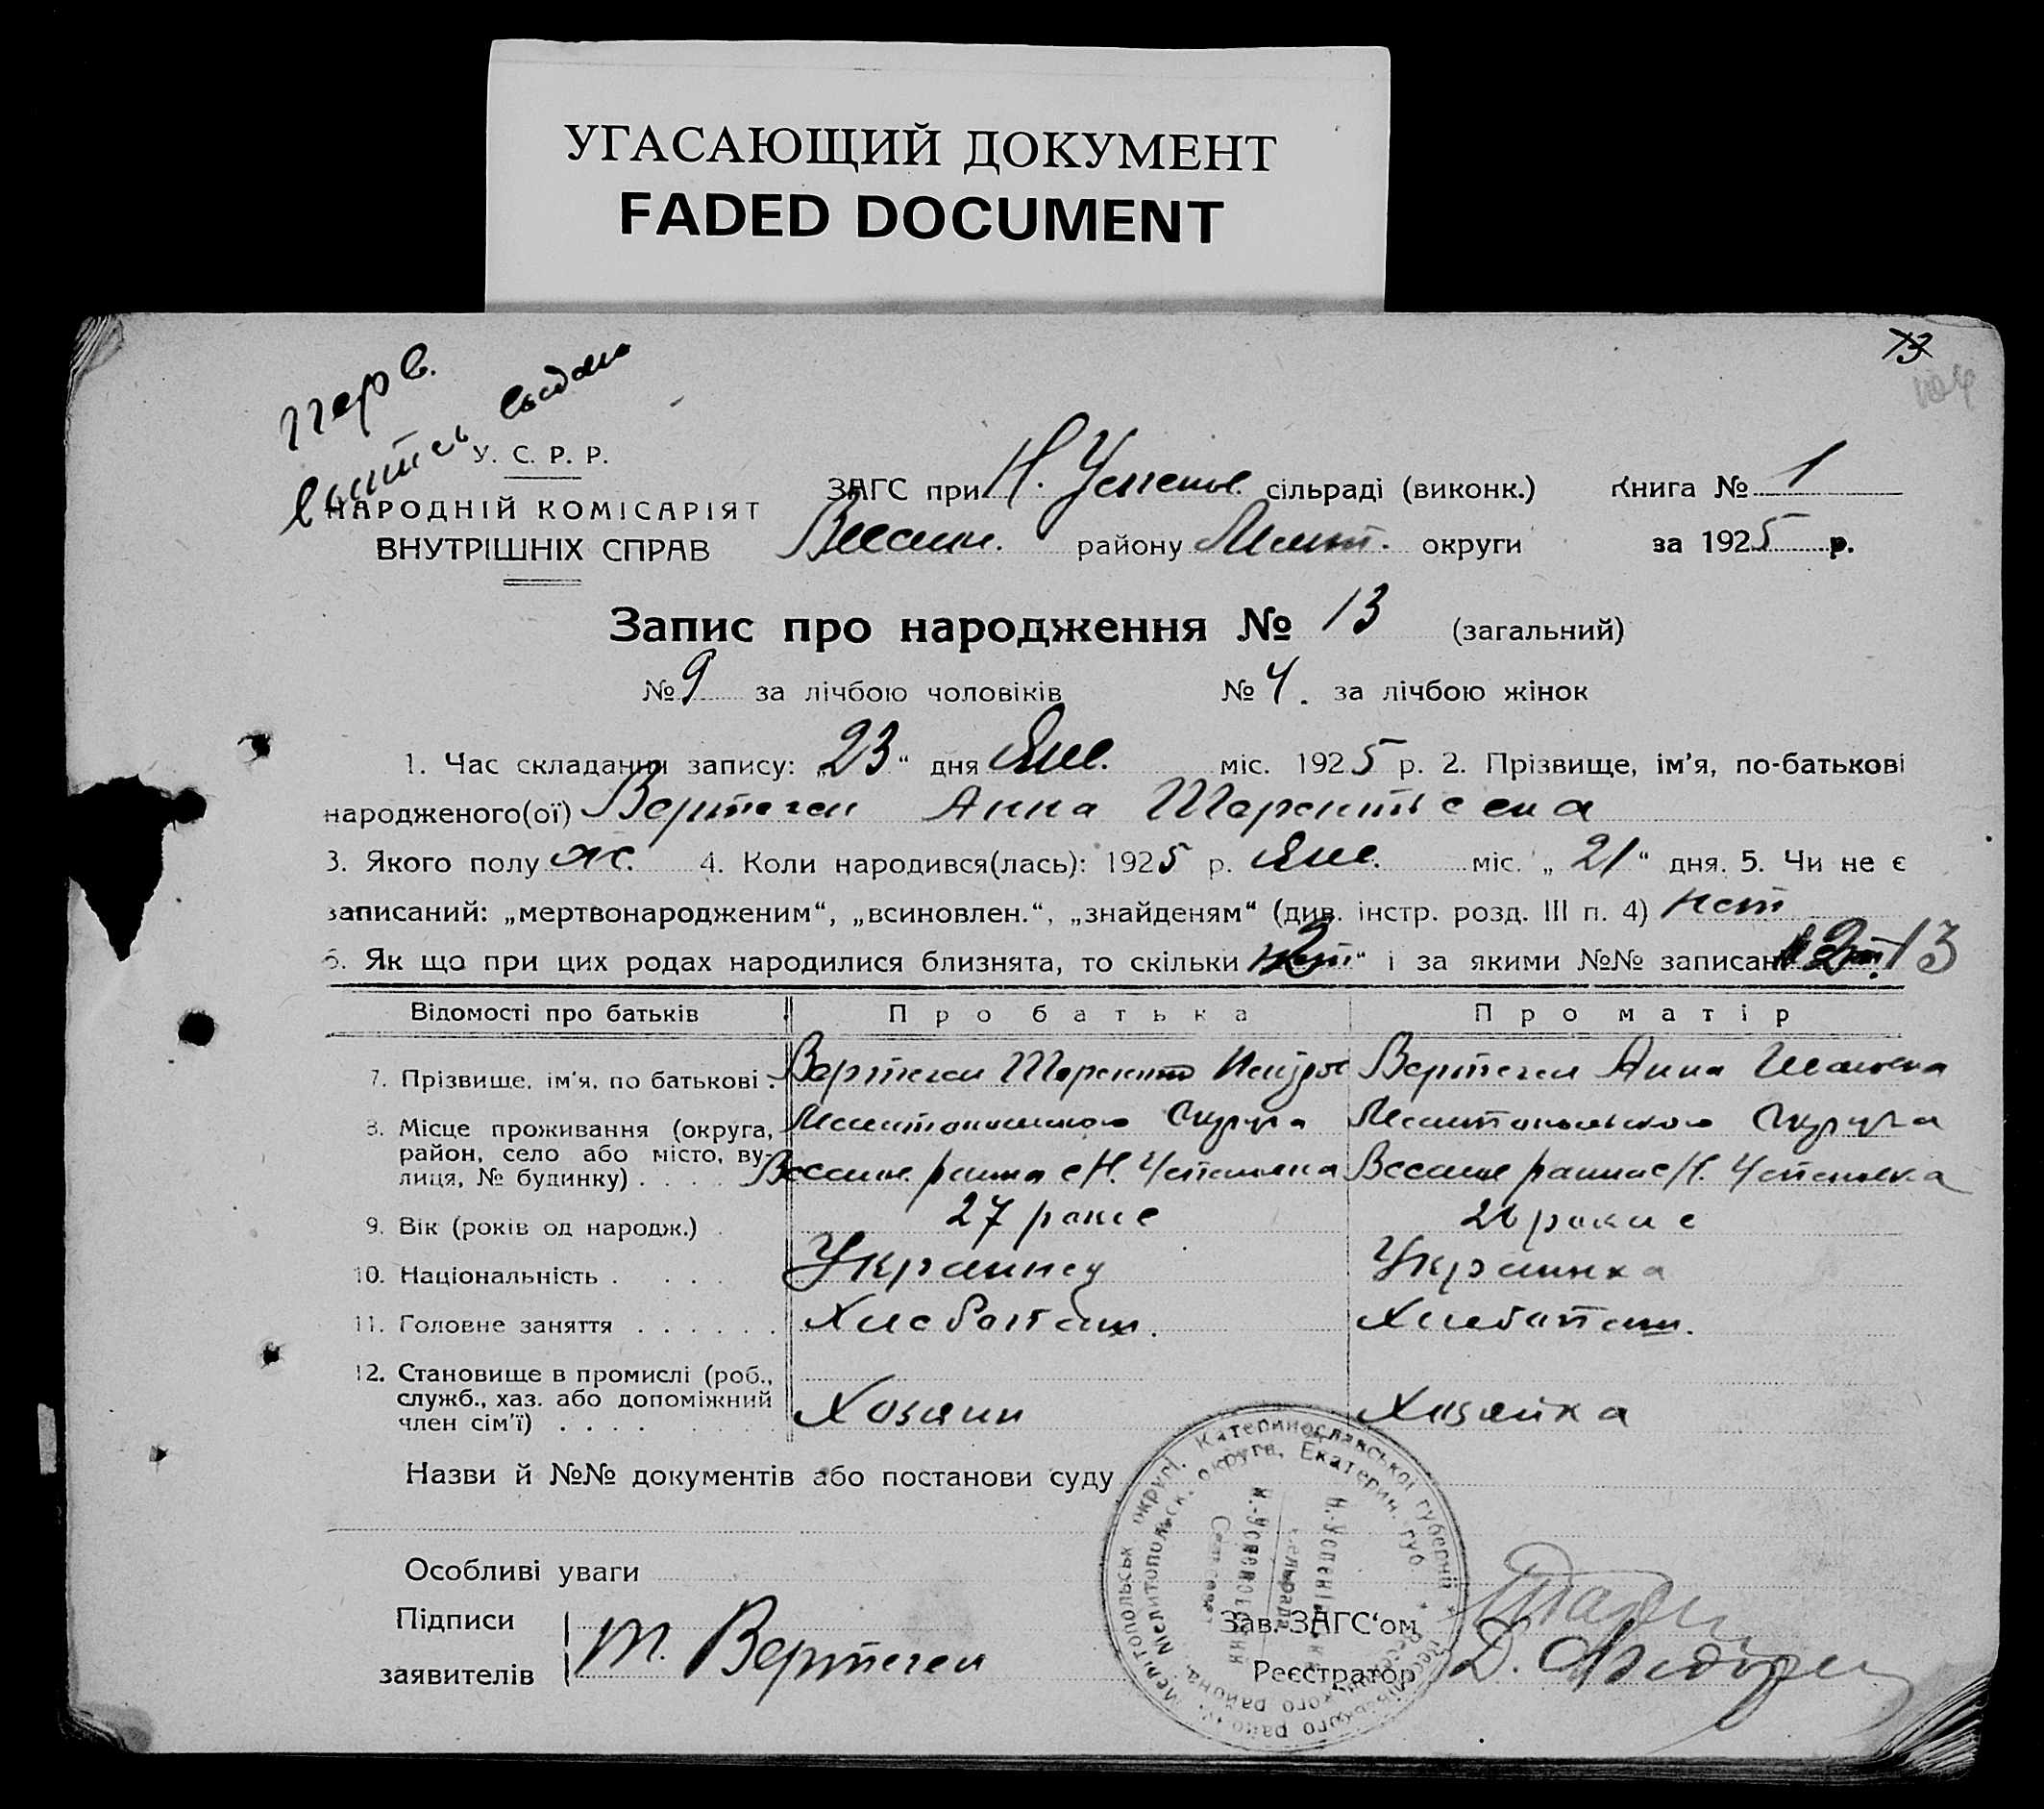 УГАСАЮЩИЙ ДОКУМЕНТ
FADED DOCUMENT
73
Перв.
У. С. Р. Р.
НАРОДНІЙ КОМІСАРІЯТ
ВНУТРІШНІХ СПРАВ
ЗАГС при Н. Успенов. сільраді (виконк.) Книга № 1
Веселов. району Мелит. округи за 1925 р.
Запис про народження № 13 (загальний)
№ 9 за лічбою чоловіків № 4. за лічбою жінок
1. Час складання запису: „23“ дня Янв. міс. 1925 р. 2. Прізвище, ім’я, по-батькові
народженого(ої) Вертегел Анна Терентьевна
3. Якого полу ж. 4. Коли народився(лась): 1925 р. Янв. міс. „21“ дня. 5. Чи не є
записаний: „мертвонародженим“, „всиновлен.“, „знайденям“ (див. інстр. розд. III п. 4) нет
6. Як що при цих родах народилися близнята, то скільки 2“ і за якими №№ записані 13
Відомості про батьків Про батька Про матір
7. Прізвище, ім’я, по батькові . Вертегел Терентий Вертегел Анна
8. Місце проживання (округа, Мелитопольского Округа Мелитопольского Округа
район, село або місто, ву-
лиця, № будинку) . . . . Веселов. района с Н. Успеновка Веселов района с Н. Успеновка
9. Вік (років од народж.) . 27 26
10. Національність . . . . Украинец Украинка
11. Головне заняття . . . . . . Хлебопаш. Хлебопаш.
12. Становище в промислі (роб.,
служб., хаз. або допоміжний
член сім’ї) . . . . . . . . Хозяин Хозяйка
Назви й №№ документів або постанови суду
Особливі уваги
Підписи
заявителів Т. Вертегел
Зав. ЗАГС‘ом
Реєстратор Д.